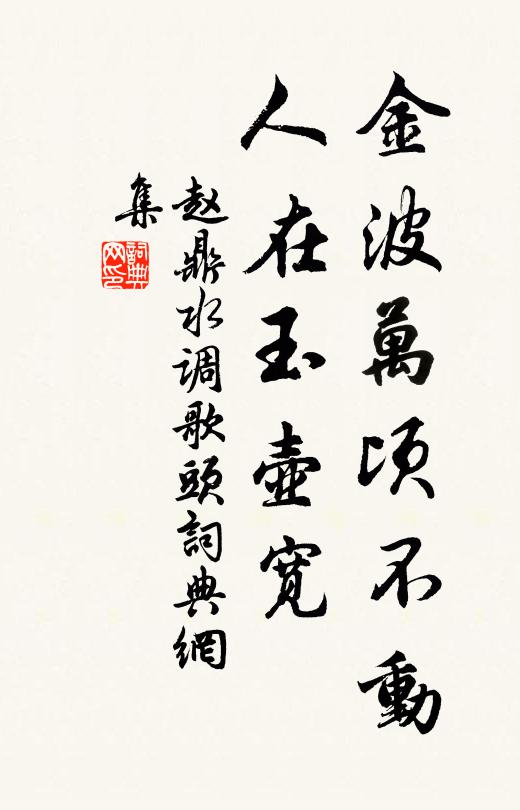 金波萬頃不動
人在玉壺寬
赵鼎水调歌頭詞典網
集
詞典
网印